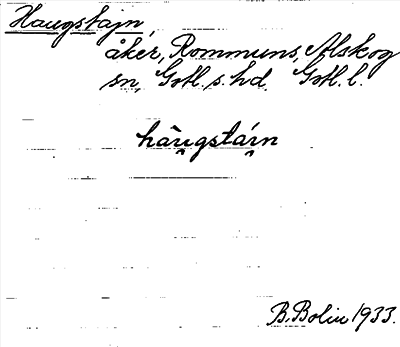 Haugstajn,
åker, Rommuns, Alskog
sn, Gotl. s. hd. Gotl. l.
hàu̯gstáɪ̯n
B. Bolin 1933.